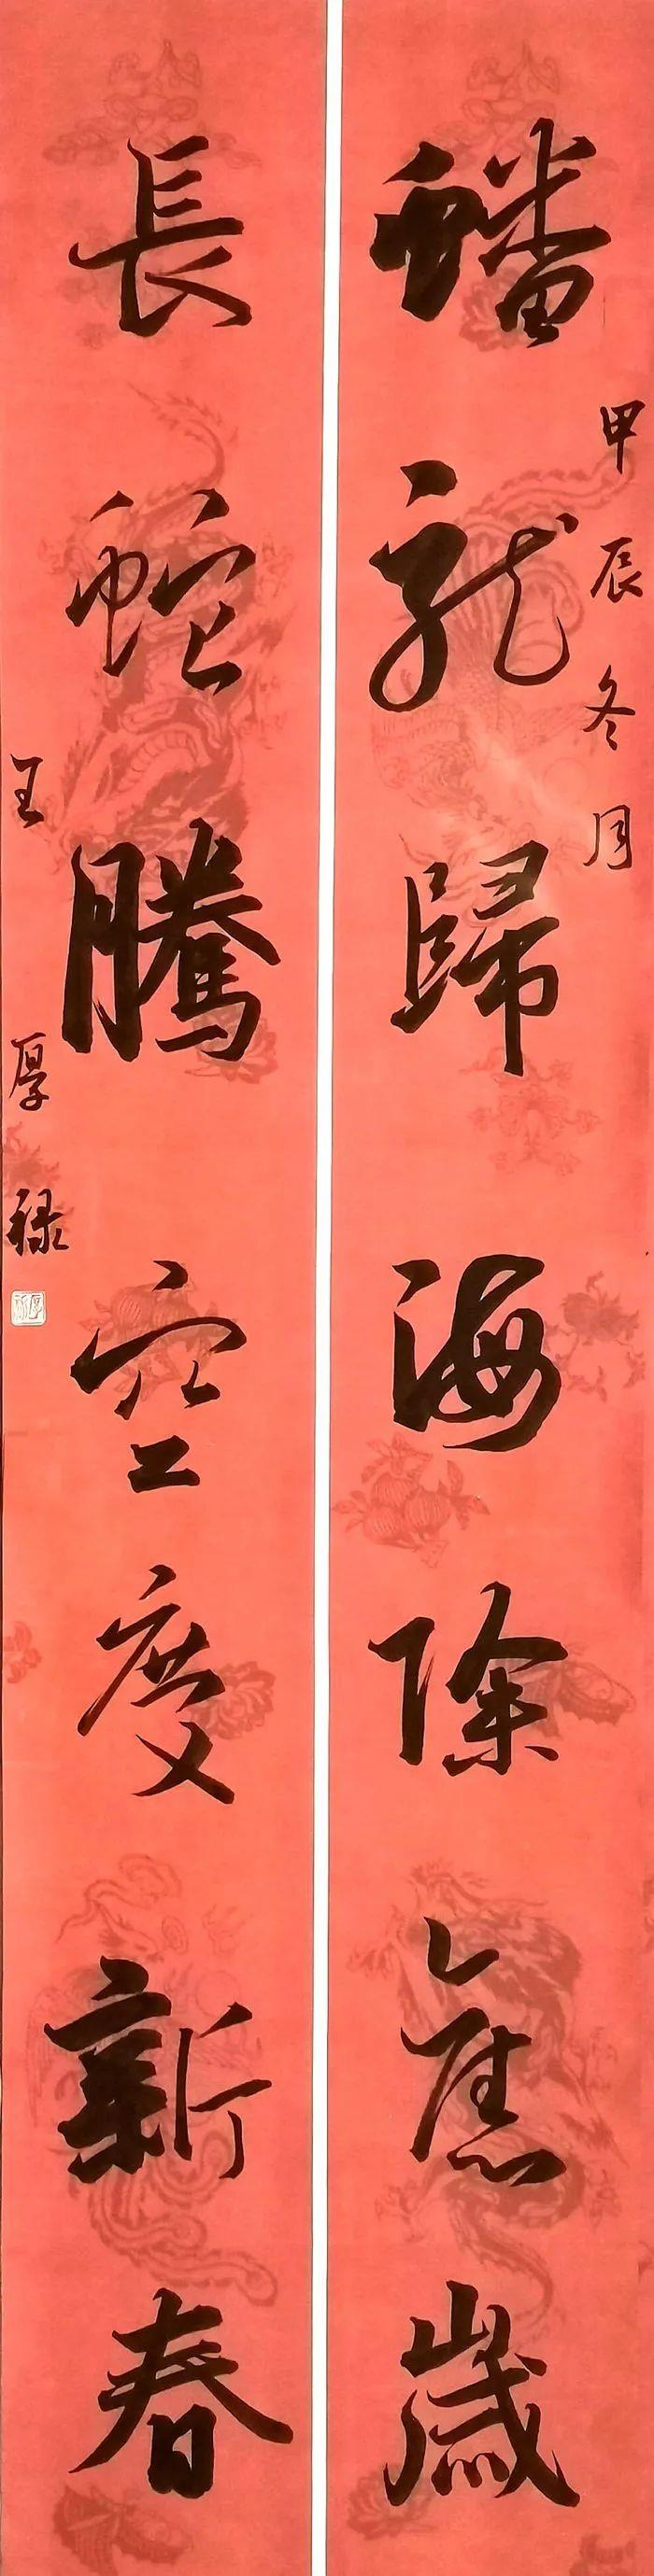 甲辰冬月
蟠龍歸海除舊歲
長蛇騰空慶新春
王厚祿